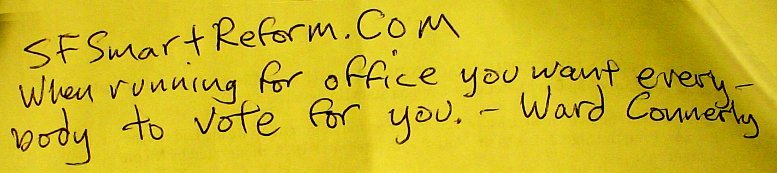 SFSmartReform.Com
When running for office you want every-
body to vote for you. - Ward Connerly